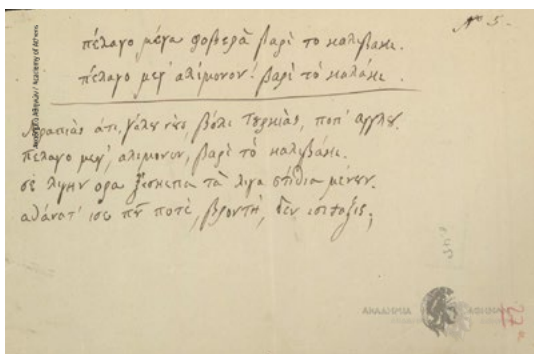 Νο 5-
πέλαγο μέγα φοβερὰ βαρὶ το καλιβάνι.
πέλαγο μεγ' αλίμονον! βαρὶ τὸ καλάνι.
Ἀραπιὰς ἀτι, βόλι Τουρκιὰς, ποπ'
πέλαγο μεγ', αλίμονον, βαρὶ τὸ καλιβάνι.
σὲ λίγην ορα ξέσκεπα τὰ λίγα στίθια μένουν.
αθάνατ' ποτὲ, βροντὴ, δεν
Ακαδημία Αθηνών / Academy of Athens
ΑΚΑΔΗΜΙΑ ΑΘΗΝΩΝ